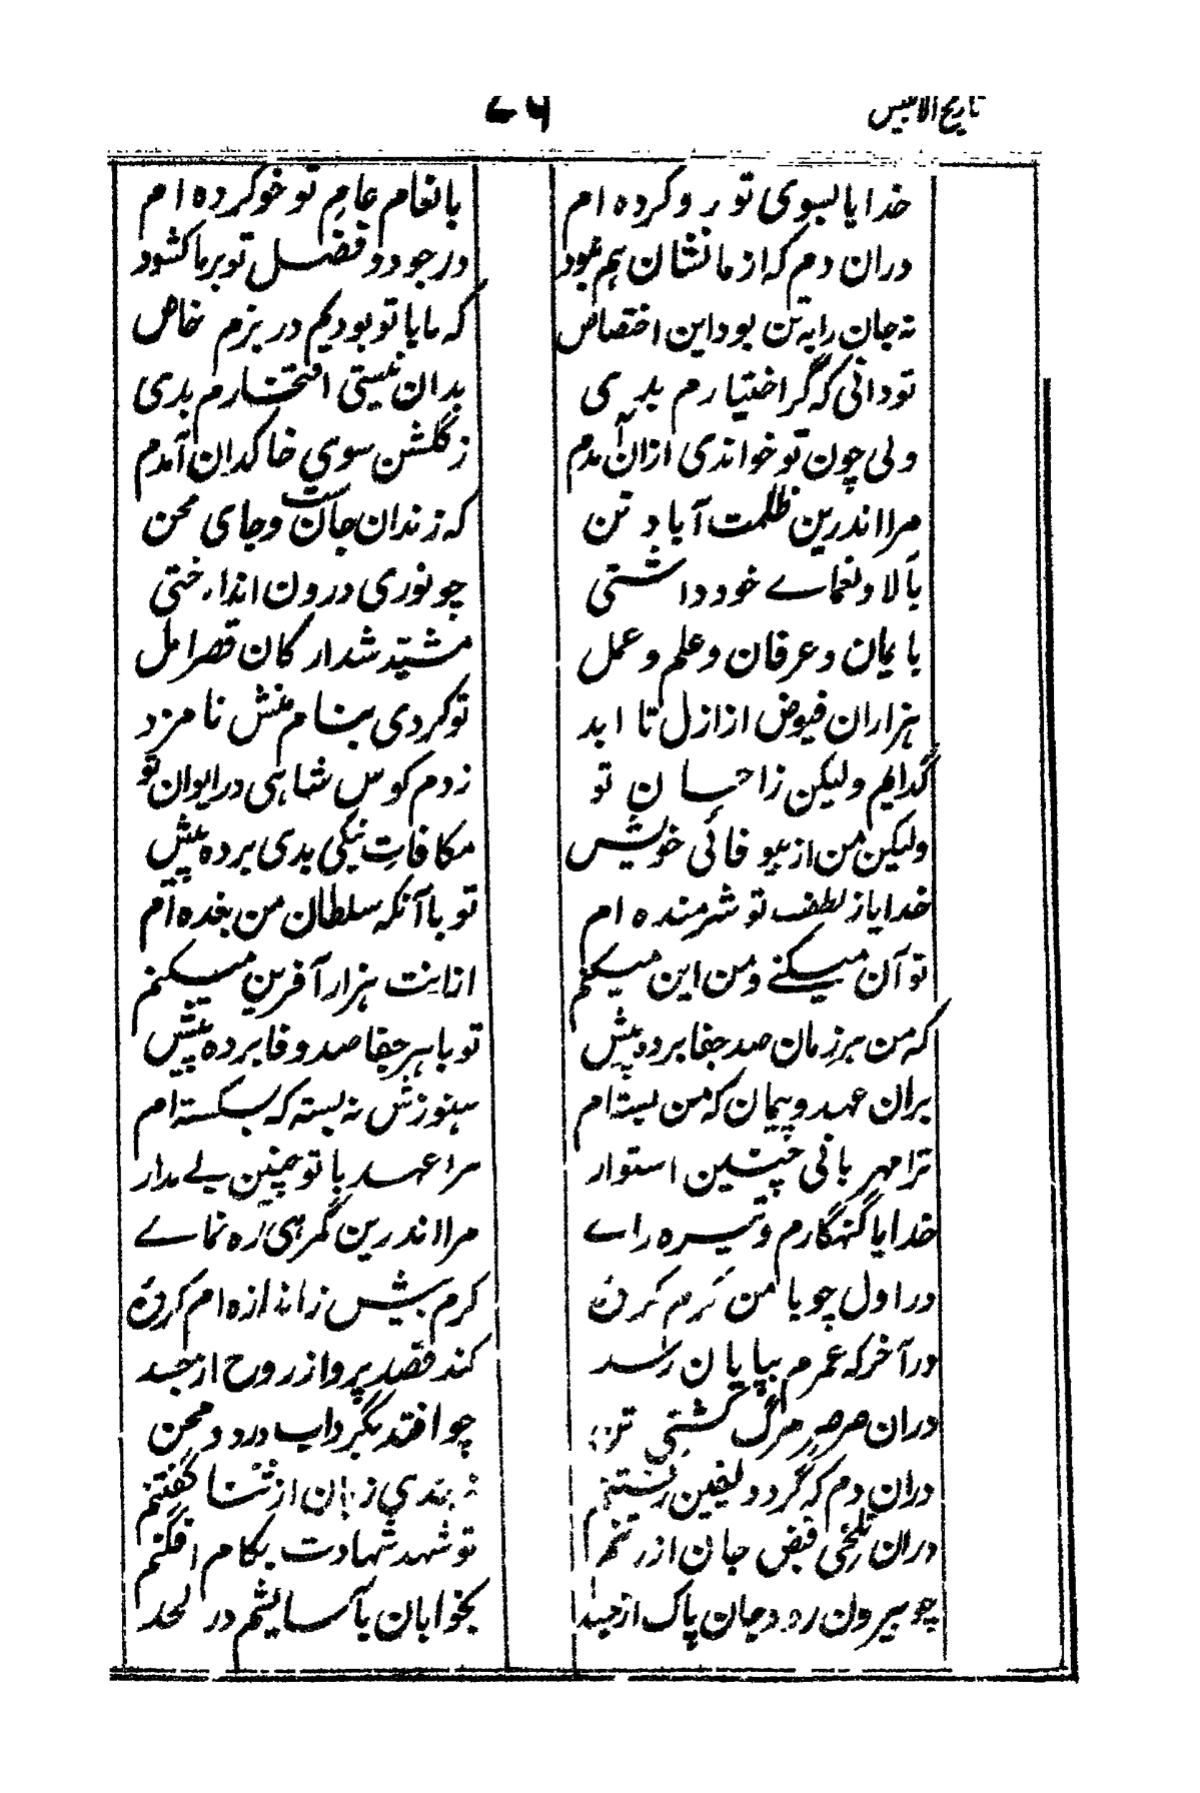 تاریخ الائیس ۷۶
خدایا بسوی تو رو کرده ام بانعام عام تو خو کرده ام
دران دم که از ما نشان هم نبود در جود و فضل تو بر ما کشود
نه جان را به تن بود این اختصاص که ما با تو بودیم در بزم خاص
تو دانی که گر اختیارم بدی بدان نیستی افتخارم بدی
ولی چون تو خواندی ازان آمدم ز گلشن سوی خاکدان آمدم
مرا اندرین ظلمت آباد تن که زندان جان ست و جای محن
بآلا و نعمای خود داشتی چو نوری درون انداختی
بایمان و عرفان و علم و عمل مشید شد ارکان قصر امل
هزاران فیوض از ازل تا ابد تو کردی بنام منش نامزد
گدایم ولیکن ز احسان تو زدم کوس شاهی در ایوان تو
ولیکن من از بیوفائی خویش مکافات نیکی بدی برده پیش
خدایا ز لطف تو شرمنده ام تو با آنکه سلطان من بنده ام
تو آن میکنے و من این میکنم انابنت هزار آفرین میکنم
که من هر زمان صد جفا برده پیش تو با هر جفا صد وفا برده پیش
بران عهد و پیمان که من بسته ام هنوزش نه بسته که بشکسته ام
ترا مهربانی چنین استوار مرا عهد با تو چنین بے مدار
خدایا گنهگارم و تیره راے مرا اندرین گمرهی ره نماے
در اول چو با من کرم کردۂ کرم بیش ز اندازه ام کردۂ
در آخر که عمرم بپایان رسد کند قصد پرواز روح از جسد
دران صرصر مرگ کشتی تن چو افتد بگرداب درد و محن
دران دم که گردد یقین رفتنم نه بندی زبان از ثنا گفتنم
دران تلخی قبض جان از تنم تو شهد شهادت بکام افگنم
چو بیرون رود جان پاک از جسد بخوابان بآسایشم در لحد